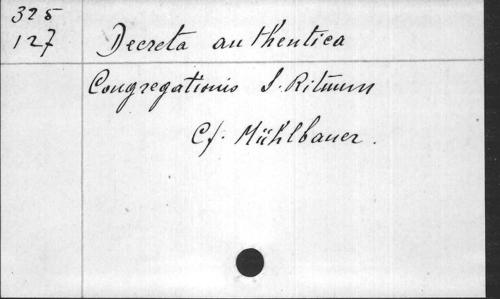 325
127
Decreta authentica
Congregationis S. Rituum
Cf. Mühlbauer.